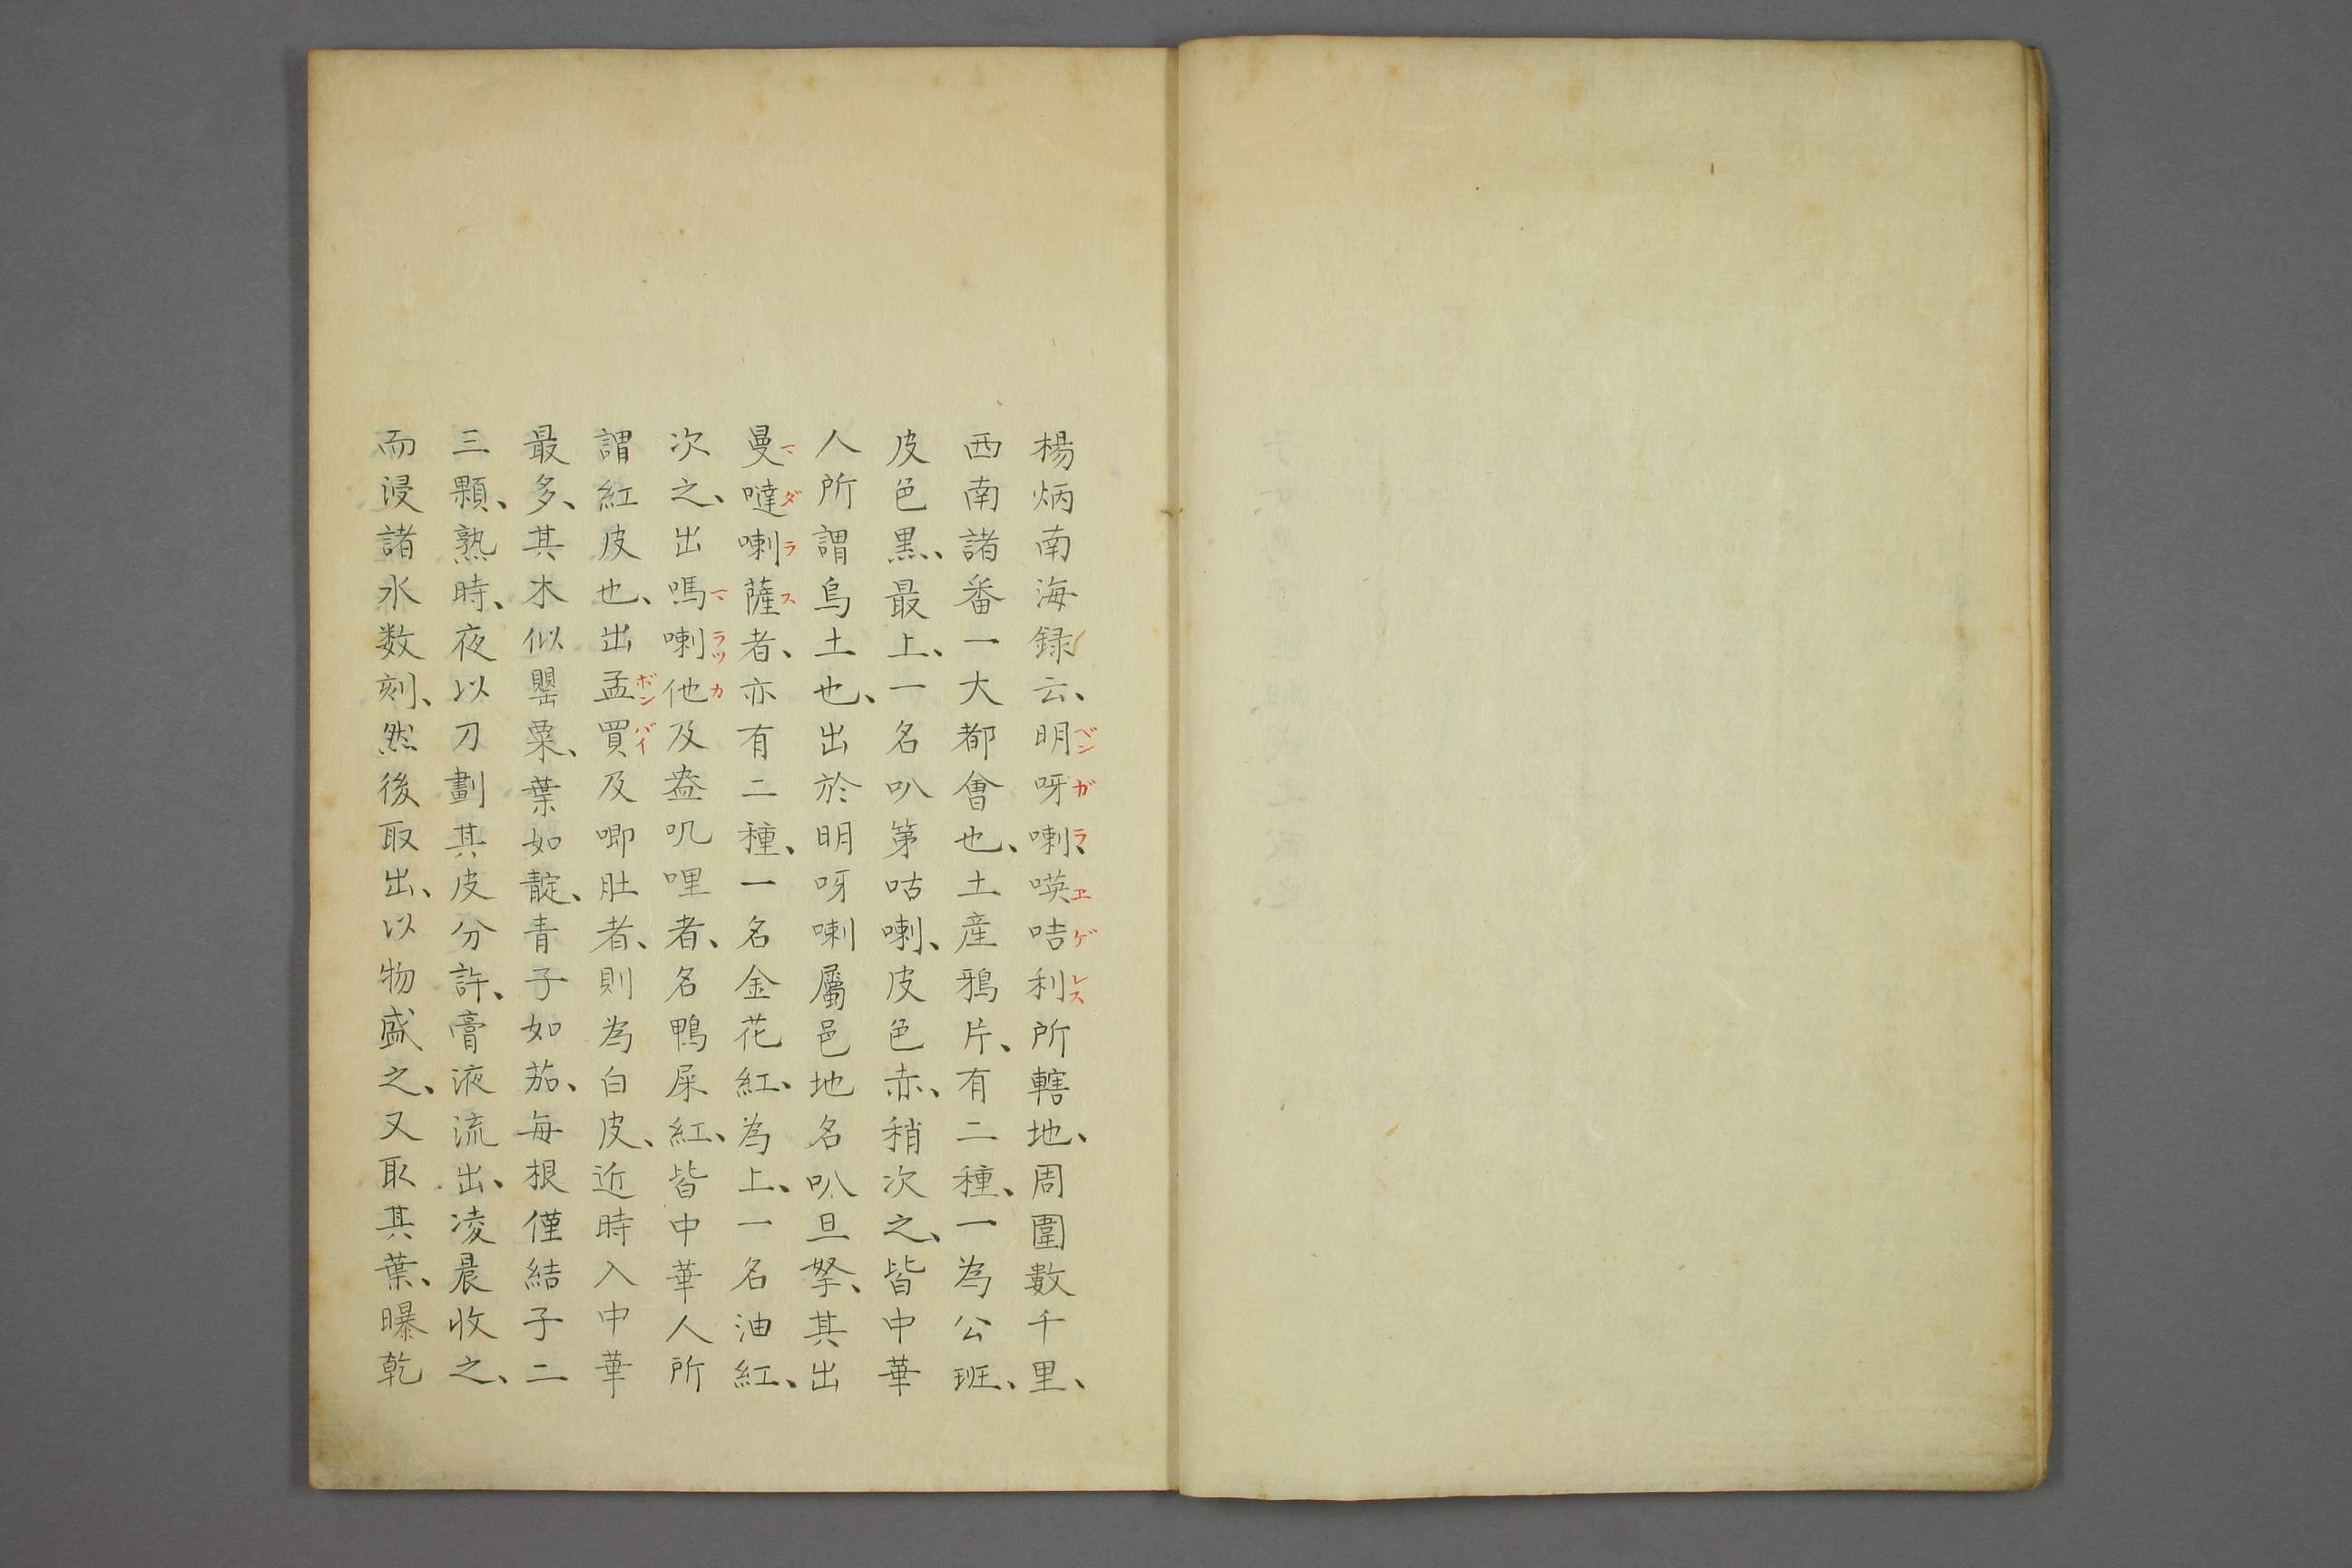 楊炳南海録云、明呀喇、𠸄咭利所轄地、周圍數千里、
西南諸番一大都會也、土産鴉片、有二種、一為公班、
皮色黒、最上、一名叭第咕喇、皮色赤、稍次之、皆中華
人所謂烏土也、出於明呀喇屬邑地名叭旦拏、其出
曼噠喇薩者、亦有二種、一名金花紅、為上、一名油紅、
次之、出嗎喇他及盎叽哩者、名鴨屎紅、皆中華人所
謂紅皮也、出孟買及唧肚者、則為白皮、近時入中華
最多、其木似罌粟、葉如靛、青子如茄、毎根僅結子二
三顆、熟時、夜以刀劃其皮分許、膏液流出、凌晨收之、
而浸諸水数刻、然後取出、以物盛之、又取其葉、曝乾
ベンガラ
ヱゲレス
マダラス
マラッカ
ボンバイ